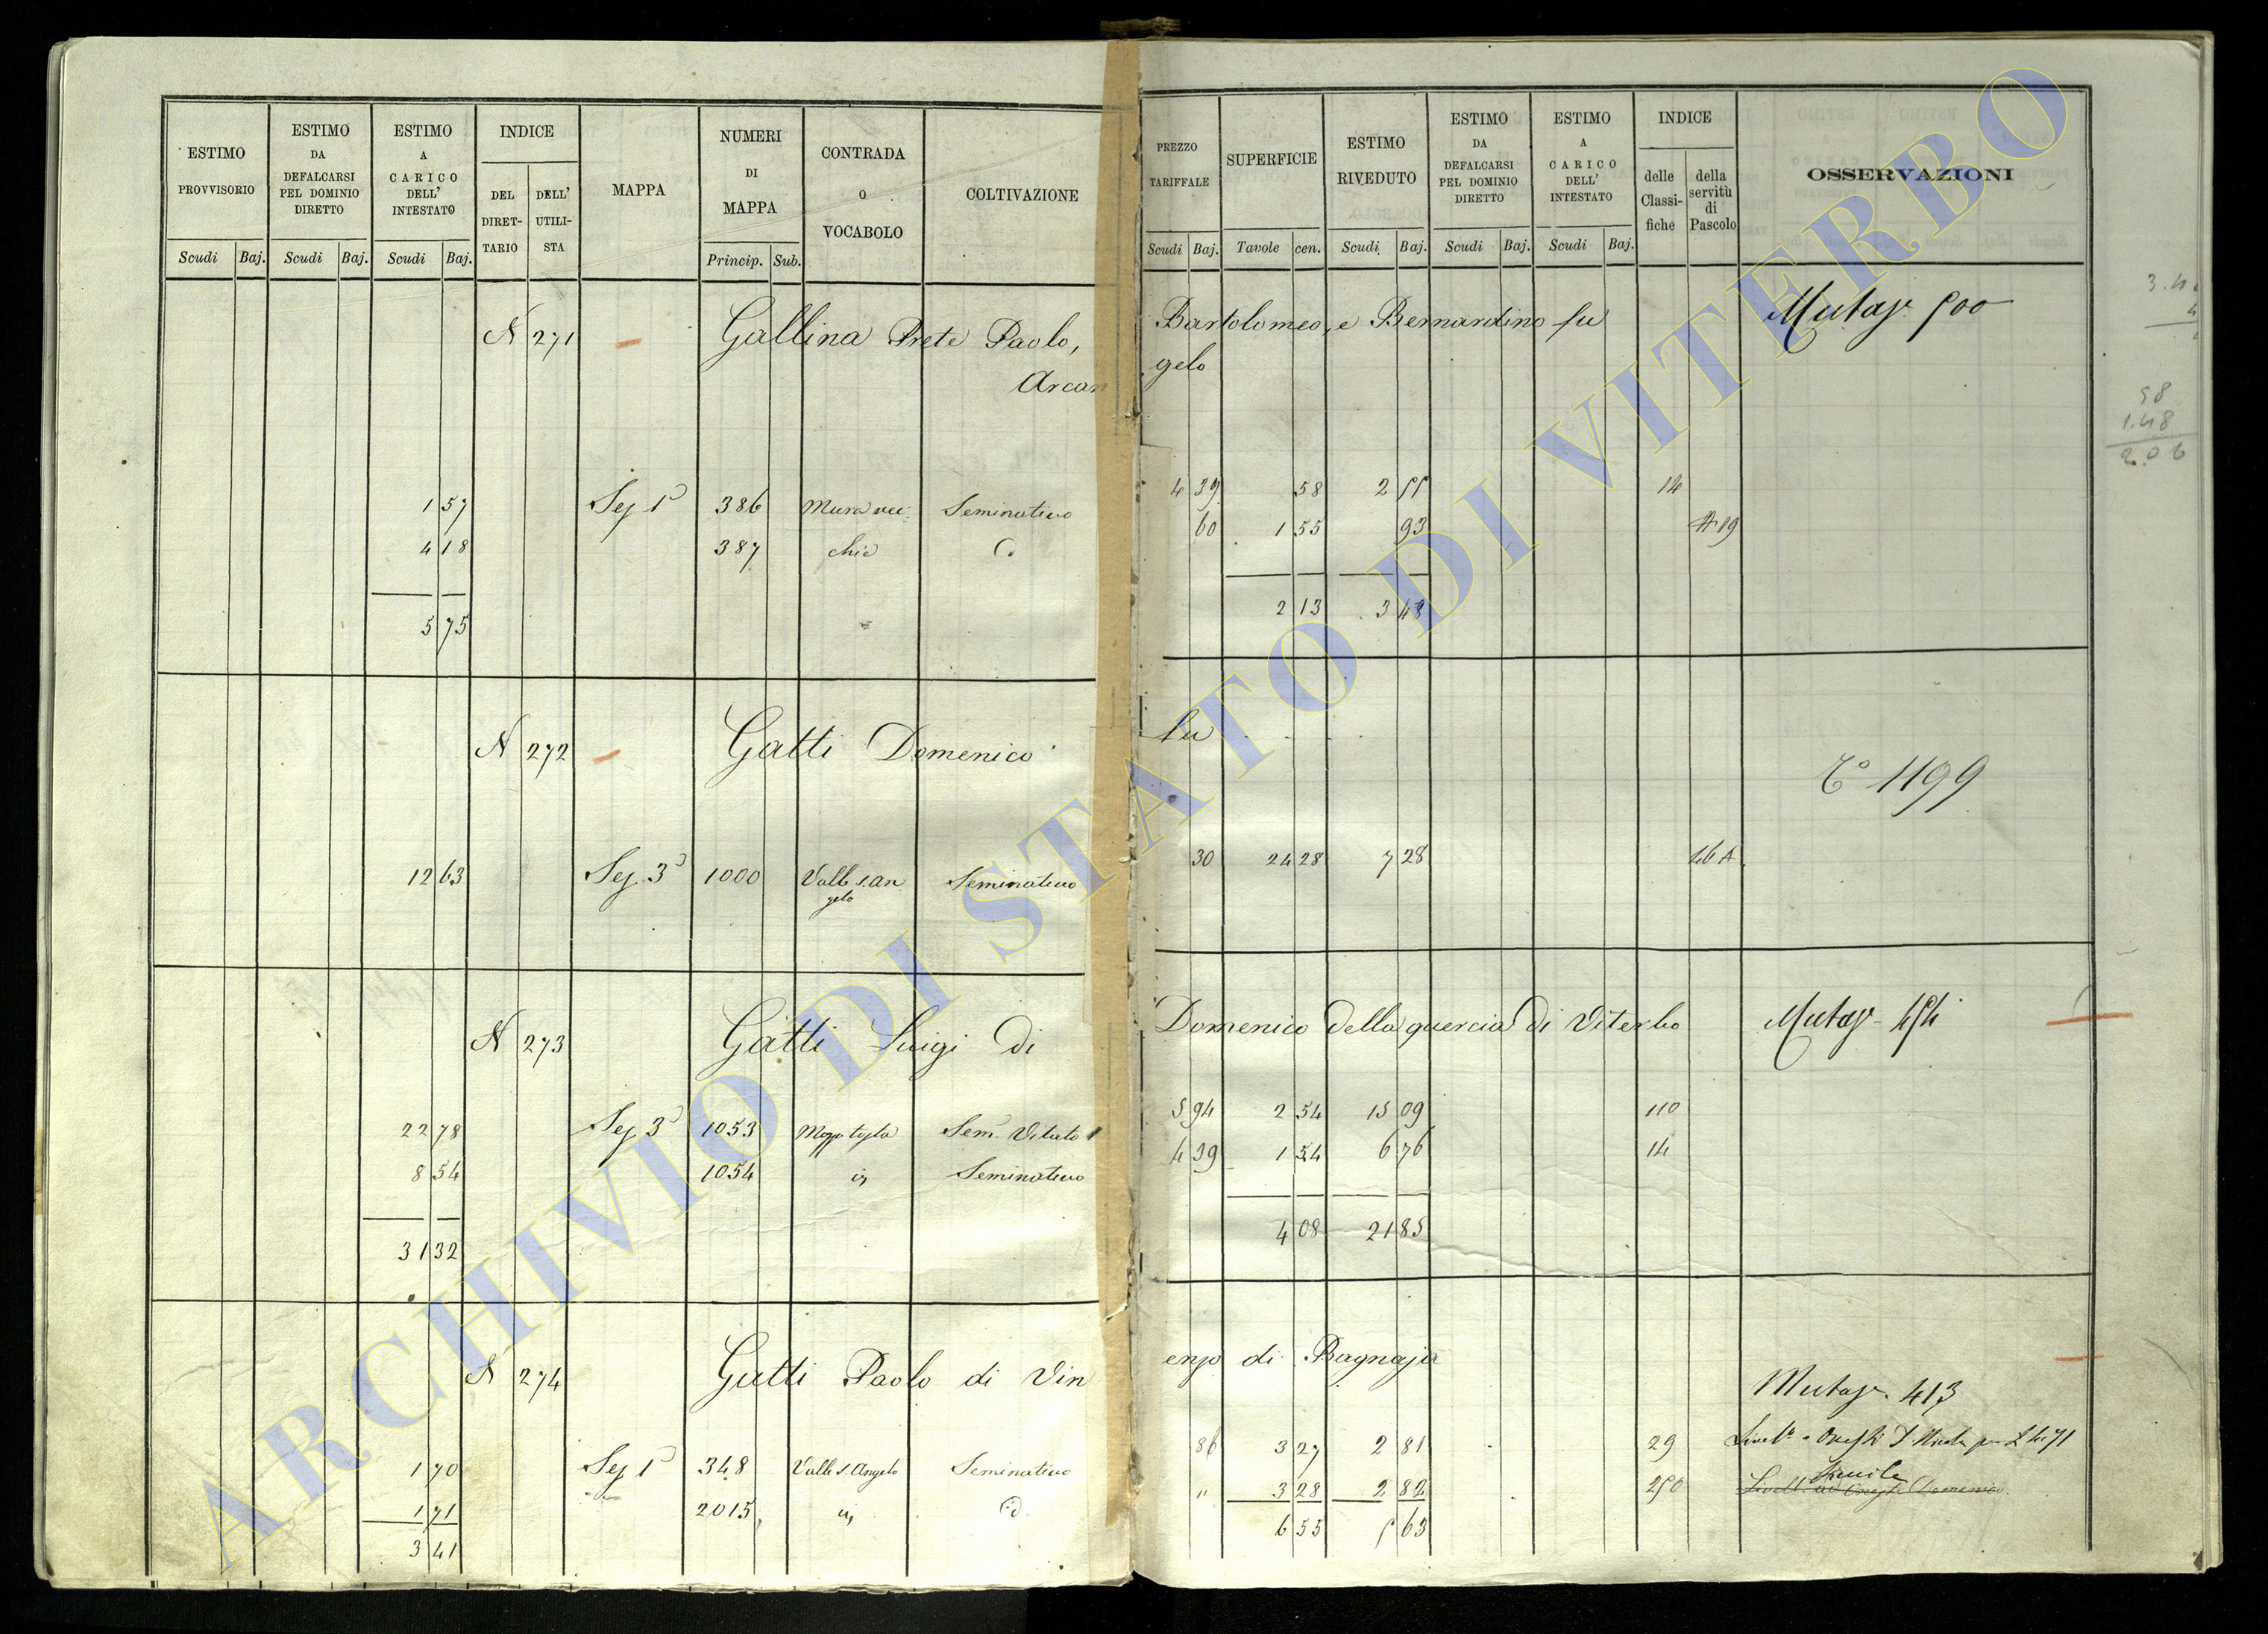 ESTIMO PROVVISORIO
ESTIMO DA DEFALCARSI PEL DOMINIO DIRETTO
ESTIMO A CARICO DELL' INTESTATO
INDICE
DEL DIRET-TARIO
DELL' UTILI-STA
MAPPA
NUMERI DI MAPPA
CONTRADA O VOCABOLO
COLTIVAZIONE
PREZZO TARIFFALE
SUPERFICIE
ESTIMO RIVEDUTO
ESTIMO DA DEFALCARSI PEL DOMINIO DIRETTO
ESTIMO A CARICO DELL' INTESTATO
INDICE
delle Classi-fiche
della servitù di Pascolo
OSSERVAZIONI
Scudi Baj. Scudi Baj. Scudi Baj. Princip. Sub. Scudi Baj. Tavole cen. Scudi Baj. Scudi Baj. Scudi Baj.
N 271 Gallina Prete Paolo, Bartolomeo, e Bernardino fu
Arcangelo
500
1 57 386 Mura vec= Seminativo 4 39 58 2 55 14
4 18 387 chie 60 1 55 93 A 19
5 75 2 13 3 48
3.4
58
1.48
2.06
N 272 Gatti Domenico fu
1199
12 63 1000 Valle S. An Seminativo 30 24 28 7 28
gelo
N 273 Gatti Luigi di Domenico della quercia di Viterbo
22 78 1053 Sem. Vitato 5 94 2 54 15 09 110
8 54 1054 Seminativo 4 39 1 54 6 76 14
31 32 4 08 21 85
N 274 Gatti Paolo di Vin enzo di Bagnaja
413
1 70 348 Valle S. Angelo Seminativo 86 3 27 2 81 29
1 71 2015 " 3 28 2 82 250 Simile
3 41 6 55 5 63
ARCHIVIO DI STATO DI VITERBO